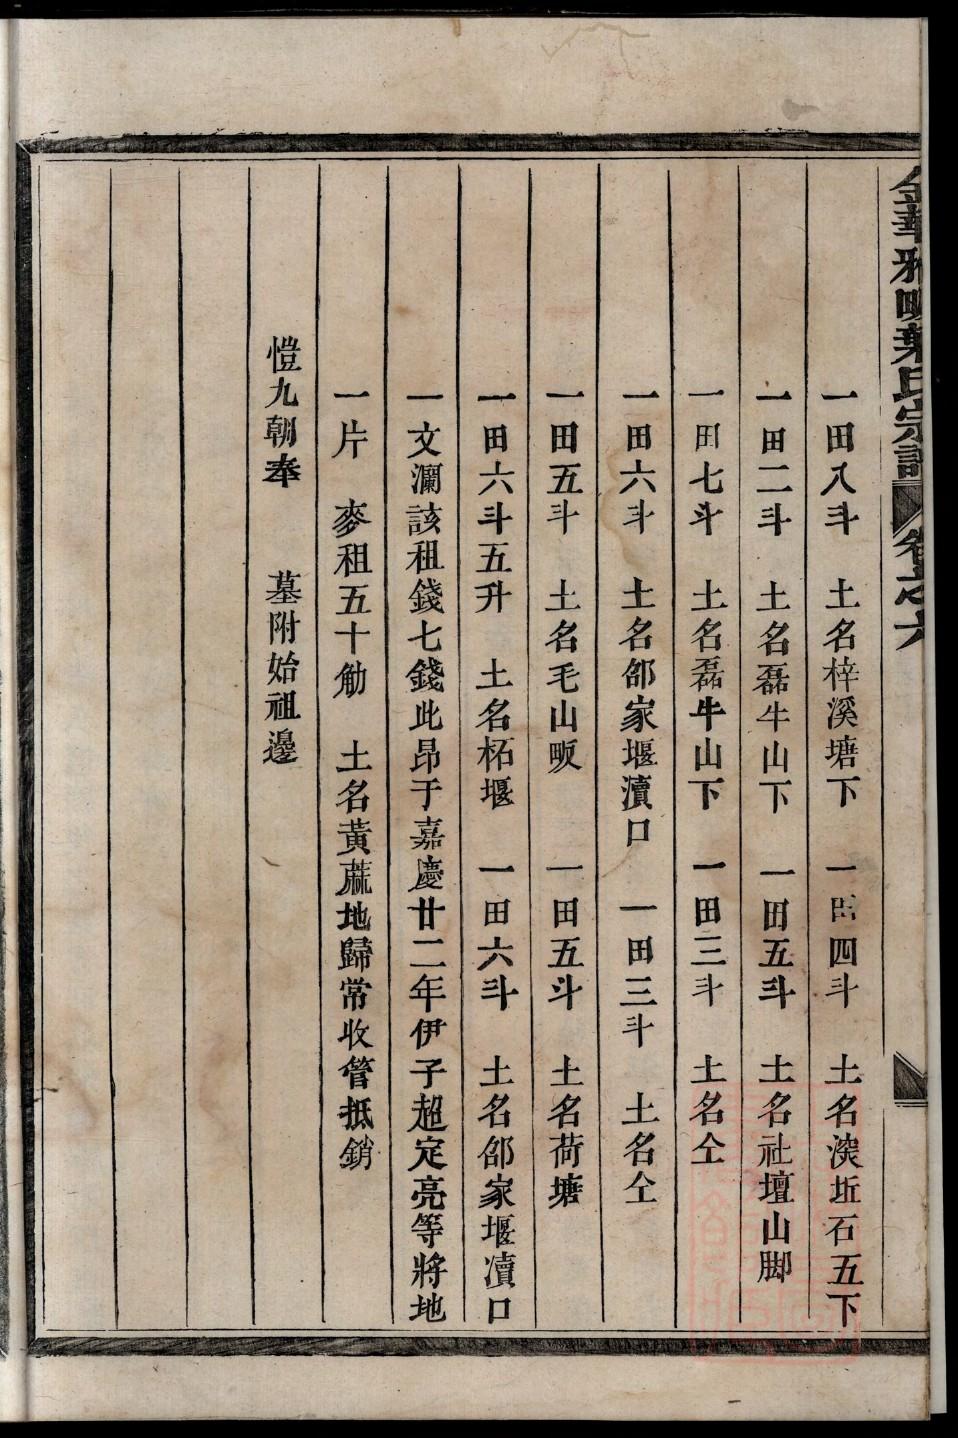 金華雅畈葉氏宗譜 卷之六
一田八斗 土名梓溪塘下 一田四斗 土名湙坵石五下
一田二斗 土名磊牛山下 一田五斗 土名社壇山脚
一田七斗 土名磊牛山下 一田三斗 土名仝
一田六斗 土名邰家堰瀆口 一田三斗 土名仝
一田五斗 土名毛山畈 一田五斗 土名荷塘
一田六斗五升 土名柘堰 一田六斗 土名邰家堰瀆口
一文瀾該租錢七錢此昂于嘉慶廿二年伊子超定亮等將地
一片 麥租五十觔 土名黃蔴地歸常收管抵銷
愷九朝奉 墓附始祖邊